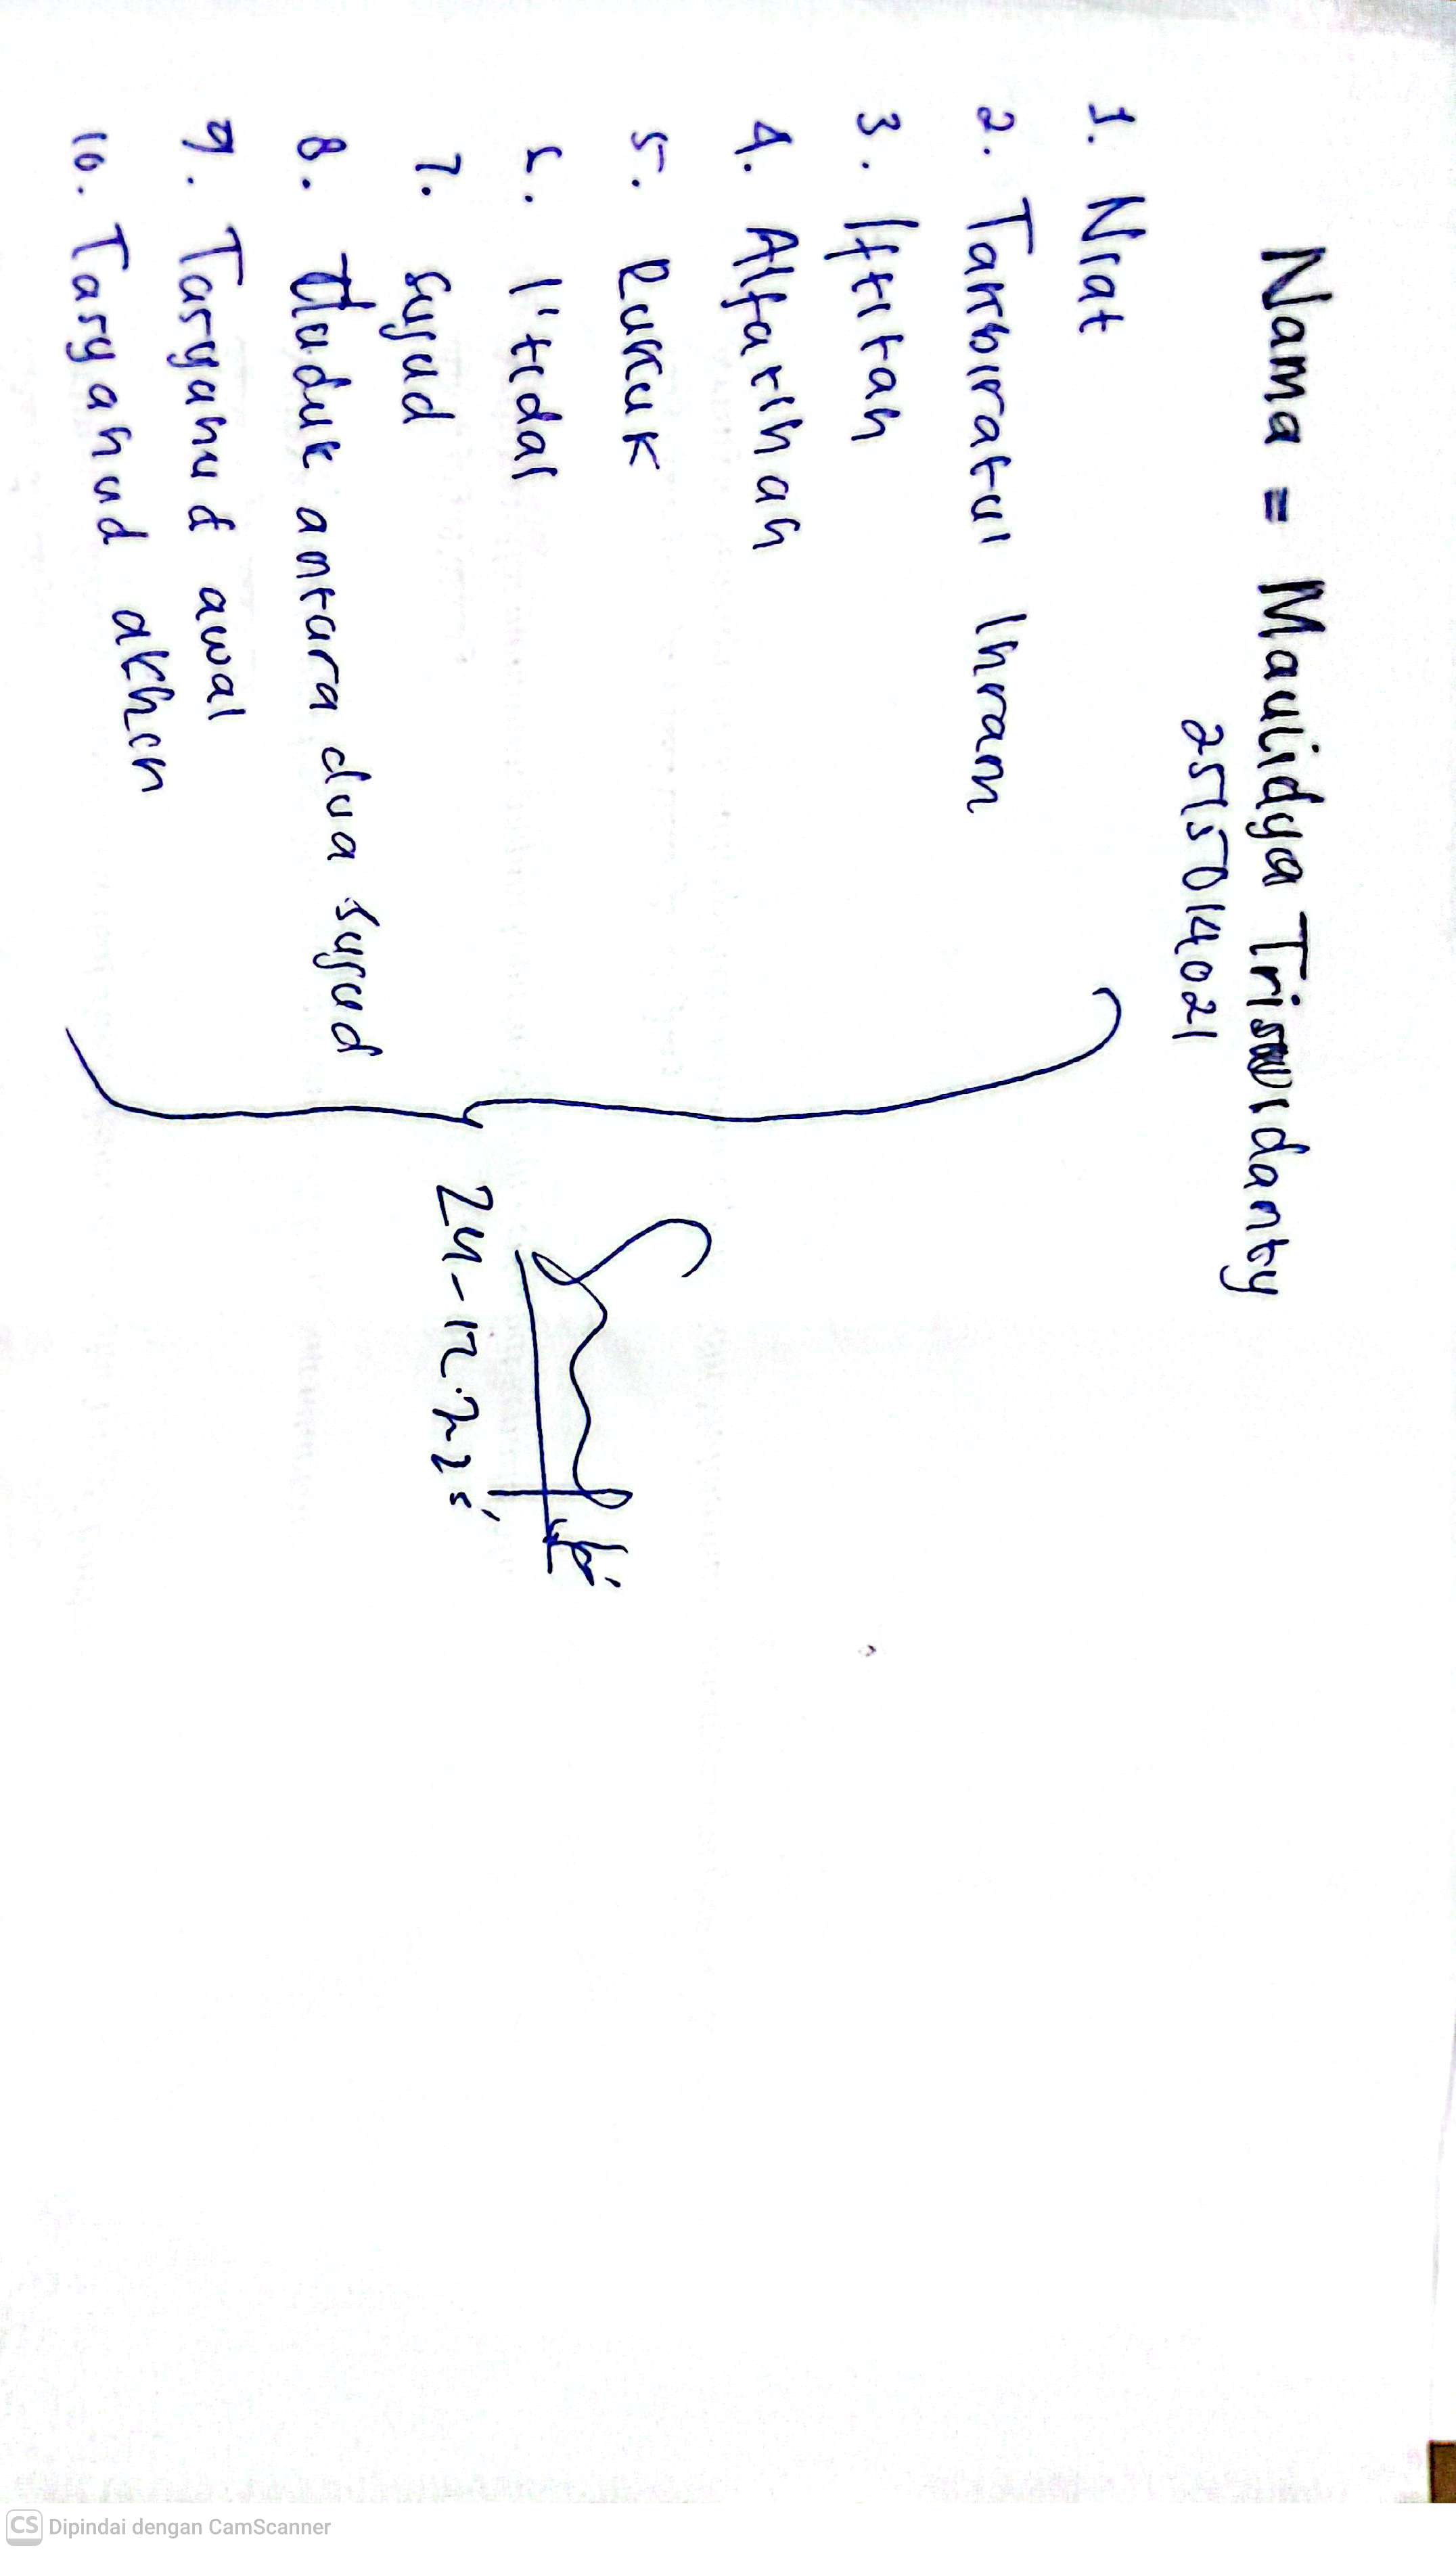 Nama = Maulidya Triswidanty
2515014021
1. Niat
2. Takbiratul Ihram
3. Iftitah
4. Alfatihah
5. Rukuk
6. I'tidal
7. Sujud
8. Duduk antara dua sujud
9. Tasyahud awal
10. Tasyahud akhir
24-12.25
CS Dipindai dengan CamScanner